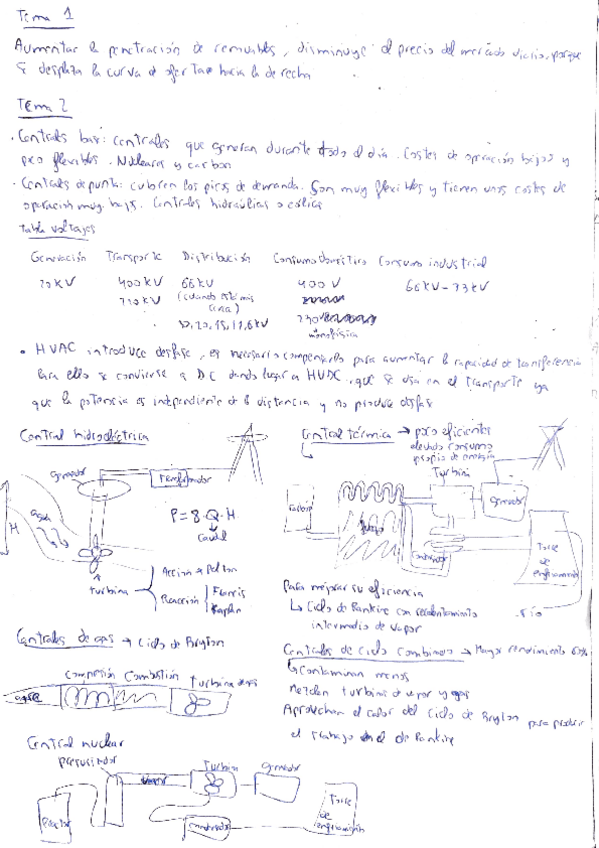 Tema 1
Aumentar la penetración de renovables, disminuye el precio del mercado diario, porque
se desplaza la curva de oferta hacia la derecha
Tema 2
· Centrales base: centrales que generan durante todo el día. Costes de operación bajos y
poco flexibles. Nucleares y carbon
· Centrales de punta: cubren los picos de demanda. Son muy flexibles y tienen unos costes de
operación muy bajos. Centrales hidraúlicas o eólicas
tabla voltajes
Generación Transporte Distribución Consumo doméstico Consumo industrial
20 KV 400 KV 66 KV 400 V 66 KV - 33 KV
220 KV (cuando está más cerca) 230
monofásica
• HVAC introduce desfase, es necesario compensarlo para aumentar la capacidad de transferencia
Para ello se convierte a DC dando lugar a HVDC, que se usa en el transporte ya
que la potencia es independiente de la distancia y no produce desfase
Central hidroeléctrica
generador
Transformador
agua
H
P = 8·Q·H
Caudal
turbina
Acción → Pelton
Reacción
Francis
Kaplan
Central térmica → poco eficientes
elevado consumo
propio de energía
Turbina
generador
Condensador
Torre
de
enfriamiento
río
Para mejorar su eficiencia
↳ Ciclo de Rankine con recalentamiento
intermedio de vapor
Centrales de gas → Ciclo de Brayton
compresión combustión turbina de gas
Centrales de ciclo combinado → Mayor rendimiento 60%
↳ Contaminan menos
Mezclan turbinas de vapor y gas
Aprovechan el calor del ciclo de Brayton para producir
el trabajo en el de Rankine
Central nuclear
presurizador
vapor
Turbina
generador
Reactor
condensador
Torre
de
enfriamiento